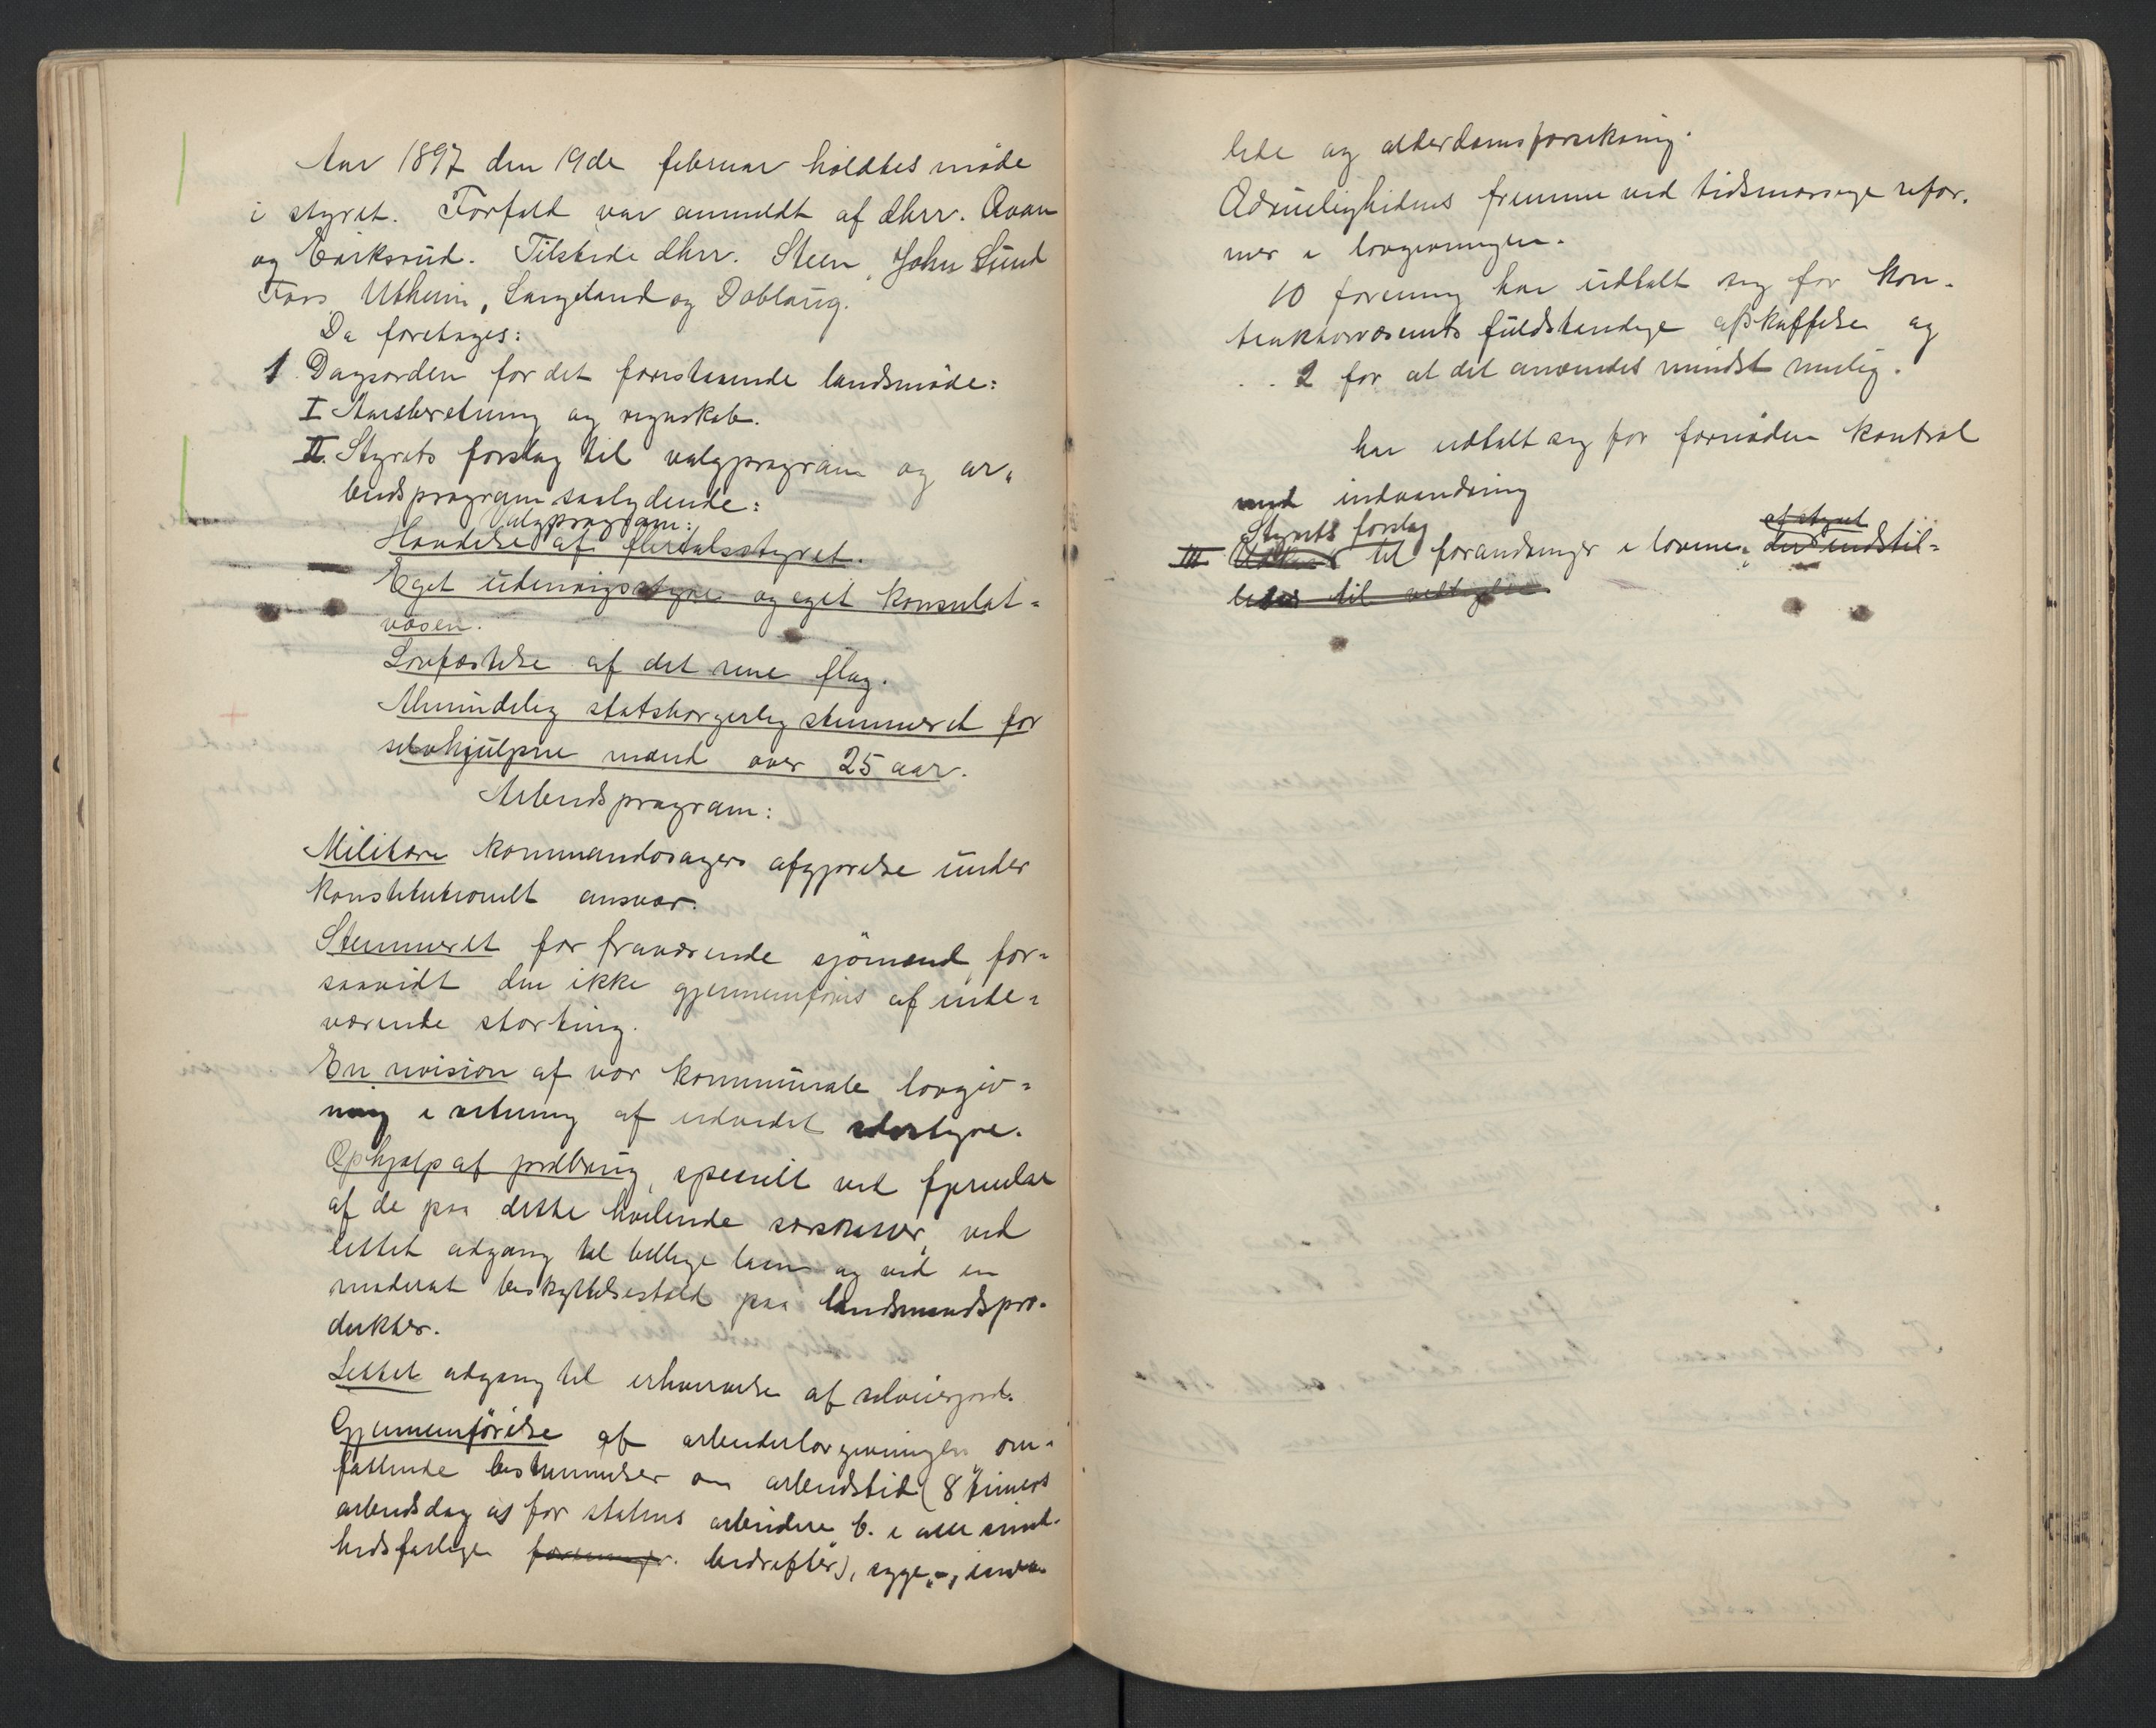 Aar 1897 den 19de februar holdtes møde
i styret. Forfald var anmeldt af dhrr. Qvam
og Eriksrud. Tilstede dhrr. Steen, John Lund
Foss, Utheim, Langeland og Doblaug.
Da foretoges:
1. Dagsorden for det forestaaende landsmøde:
I Aarsberetning og regnskab.
II. Styrets forslag til valgprogram og ar-
beidsprogram saalydende:
Valgprogram:
Hævdelse af flertalsstyret.
Eget udenrigsstyre og eget konsulat-
væsen.
Lovfæstelse af det rene flag.
Almindelig statsborgerlig stemmeret for
selvhjulpne mænd over 25 aar.
Arbeidsprogram:
Militære kommandosagers afgjørelse under
konstitutionelt ansvar.
Stemmeret for fraværende sjømænd, for-
saavidt den ikke gjennemføres af inde-
værende storting.
En revision af vor kommunale lovgiv-
ning i retning af udvidet selvstyre.
Ophjælp af jordbrug, specielt ved fjernelse
af de paa dette hvilende særskatter, ved
lettet adgang til billige laan og ved en
moderat beskyttelsestold paa landsmandspro-
dukter.
Lettet adgang til erhvervelse af selveierjord.
Gjennemførelse af arbeiderlovgivningen om-
fattende bestemmelser om arbeidstid (8 timers
arbeidsdag a) for statens arbeidere b. i alle sund-
hedsfarlige bedrifter), syge-, inva-
lide og alderdomsforsikring.
Ædruelighedens fremme ved tidsmæssige refor-
mer i lovgivningen.
10 forening har udtalt sig for kon-
traktørvæsenets fuldstændige afskaffelse og
2 for at det anvendes mindst mulig.
har udtalt sig for fornøden kontrol
med indvandring
Styrets forslag
af styret
III Udkast til forandringer i lovene, der indstil-
les til vedtagelse.